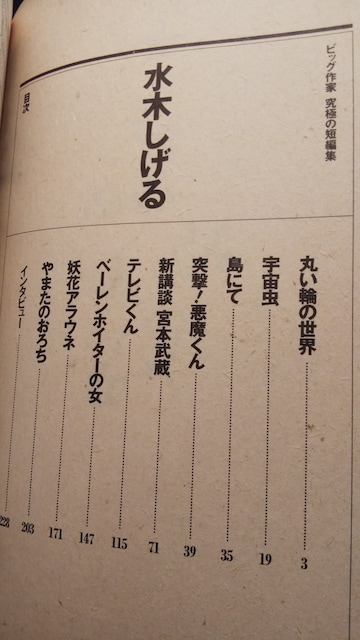 ビッグ作家 究極の短編集
水木しげる
目次
丸い輪の世界 3
宇宙虫 19
島にて 35
突撃!悪魔くん 39
新講談 宮本武蔵 71
テレビくん 115
ベーレンホイターの女 147
妖花アラウネ 171
やまたのおろち 203
インタビュー 228